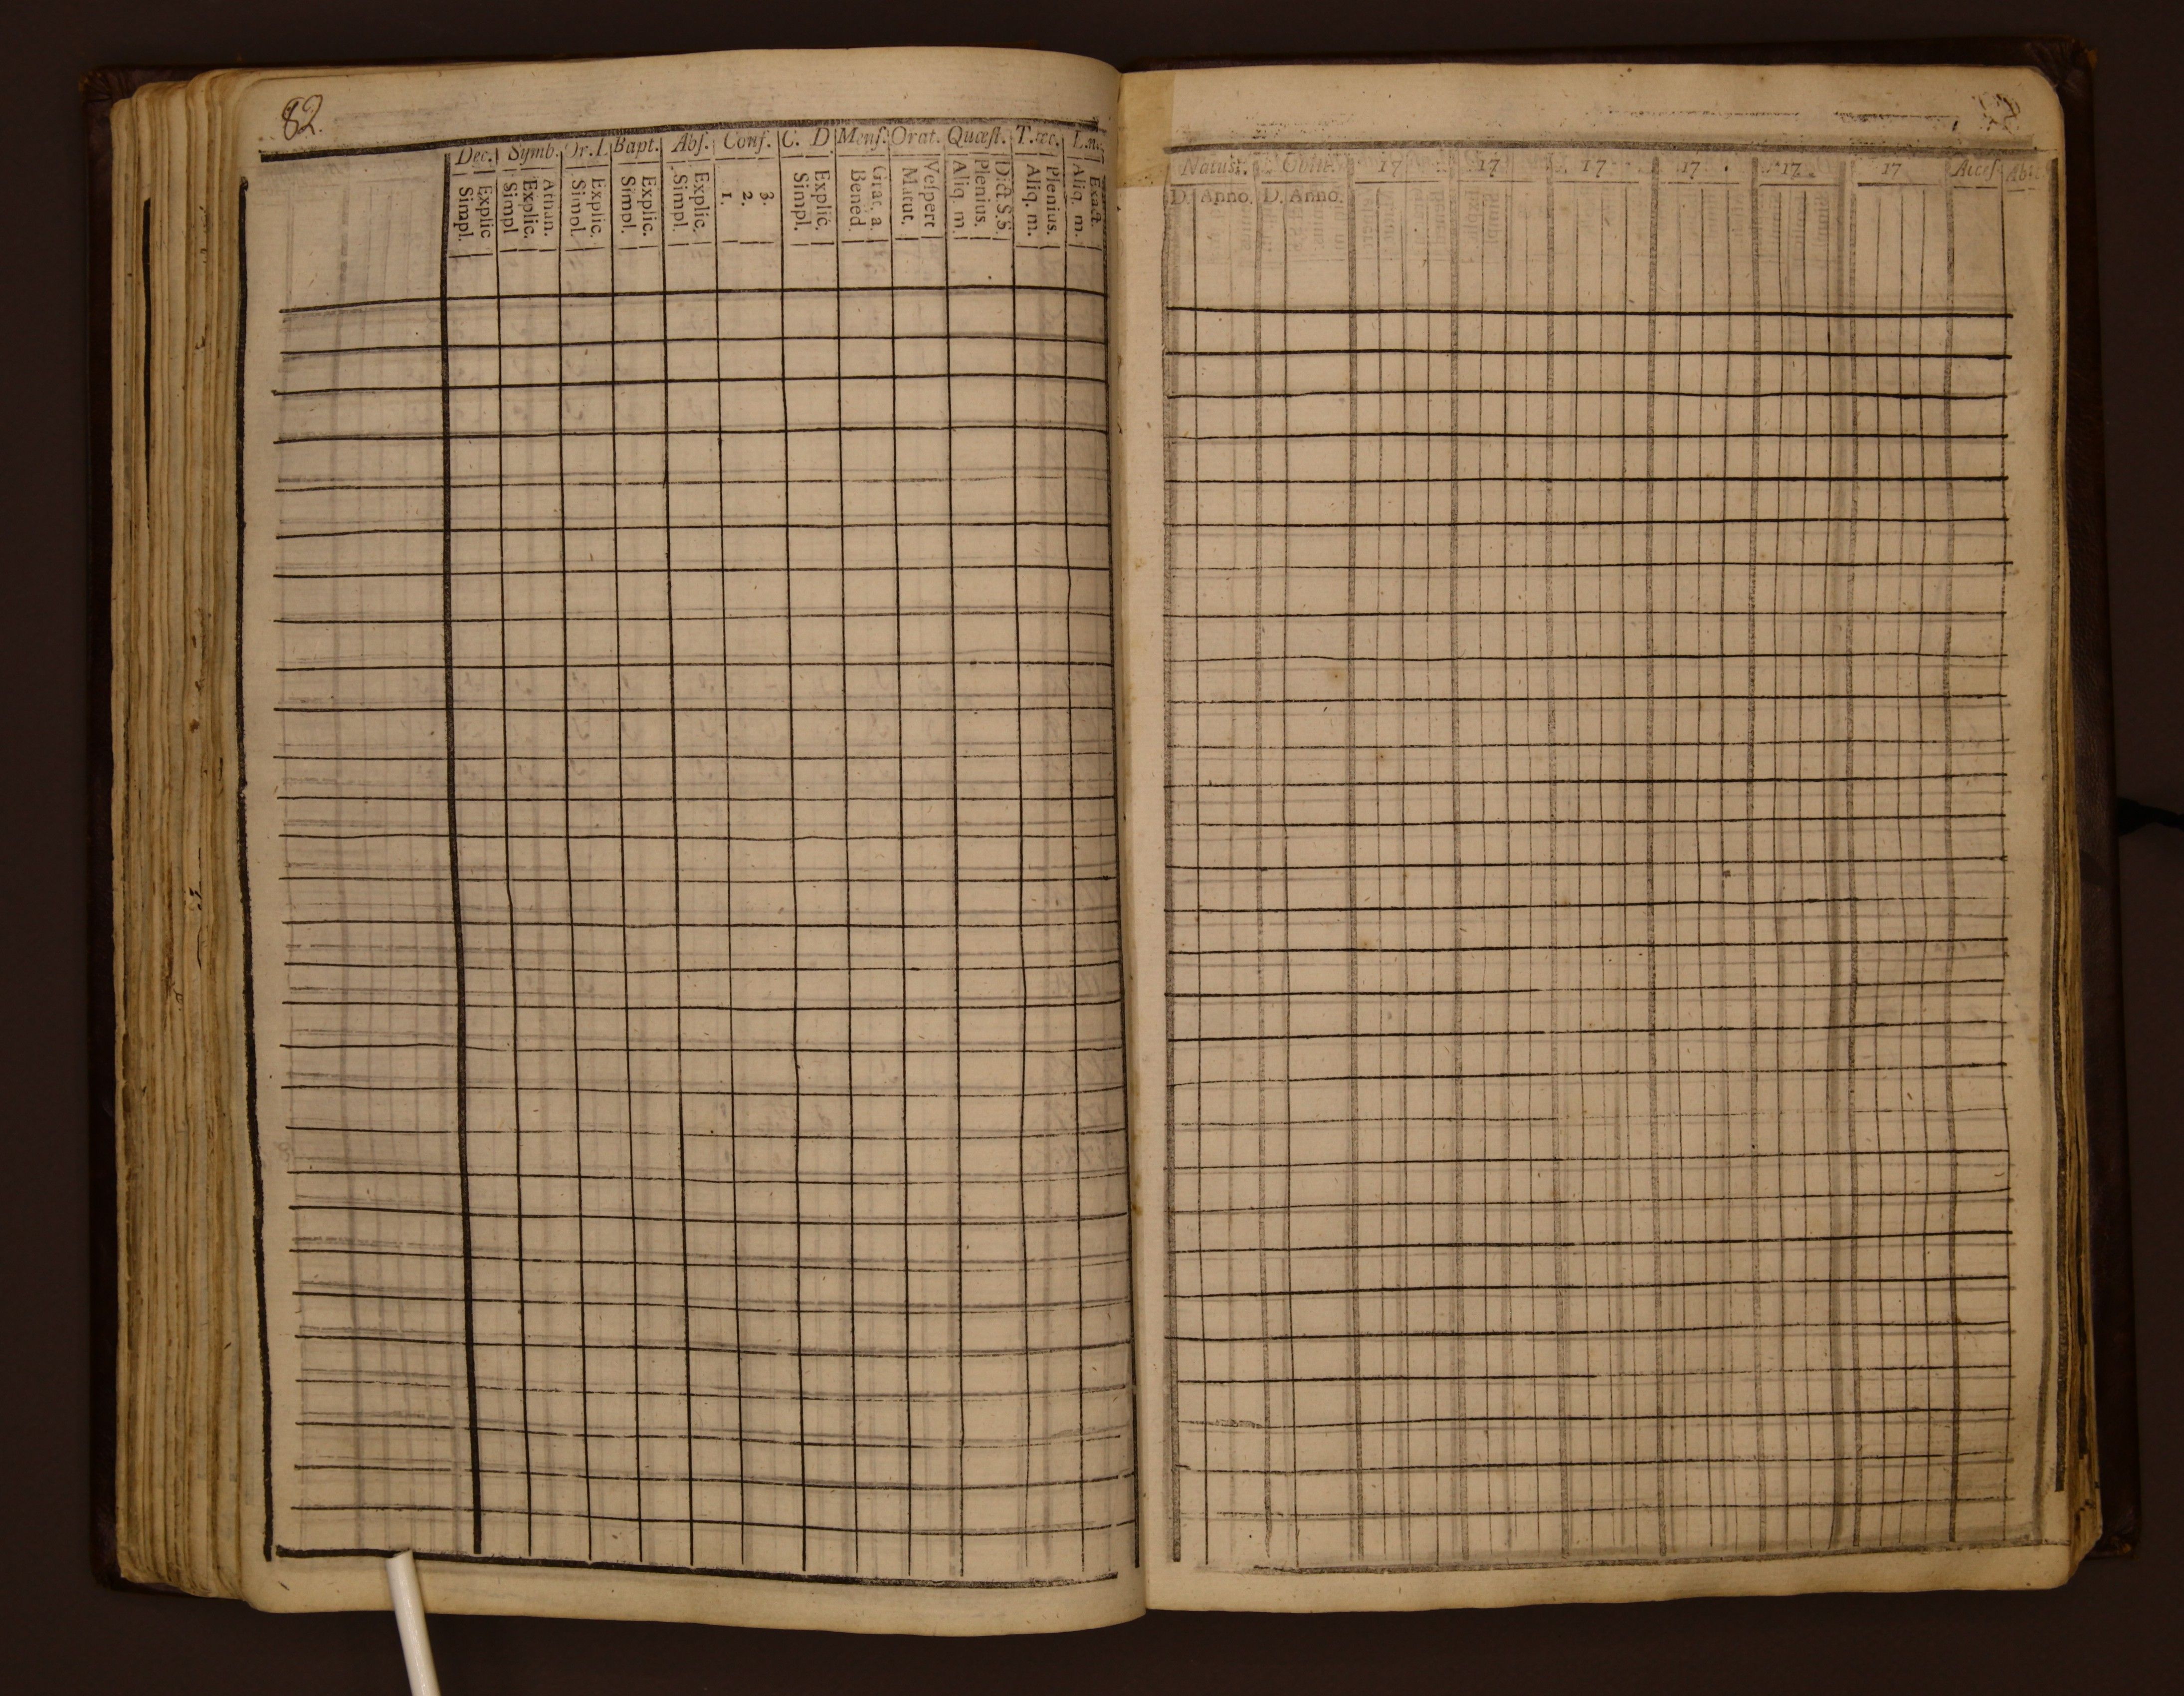 82.
Dec. Symb. Or. I. Bapt. Abſ. Conf. C. D Menſ. Orat. Quæſt. T. œc.
Explic Simpl.
Athan. Explic. Simpl
Explic. Simpl.
Explic. Simpl.
Explic. Simpl.
3. 2. 1.
Explic. Simpl.
Grat. a. Bened
Veſpert Matut.
Dict S.S. Plenius. Aliq. m.
Plenius. Aliq. m.
Exact. Aliq. m.
Natus. Obiit. 17 17 17 17 17 17 Acceſ. Abi
D. Anno. D. Anno.